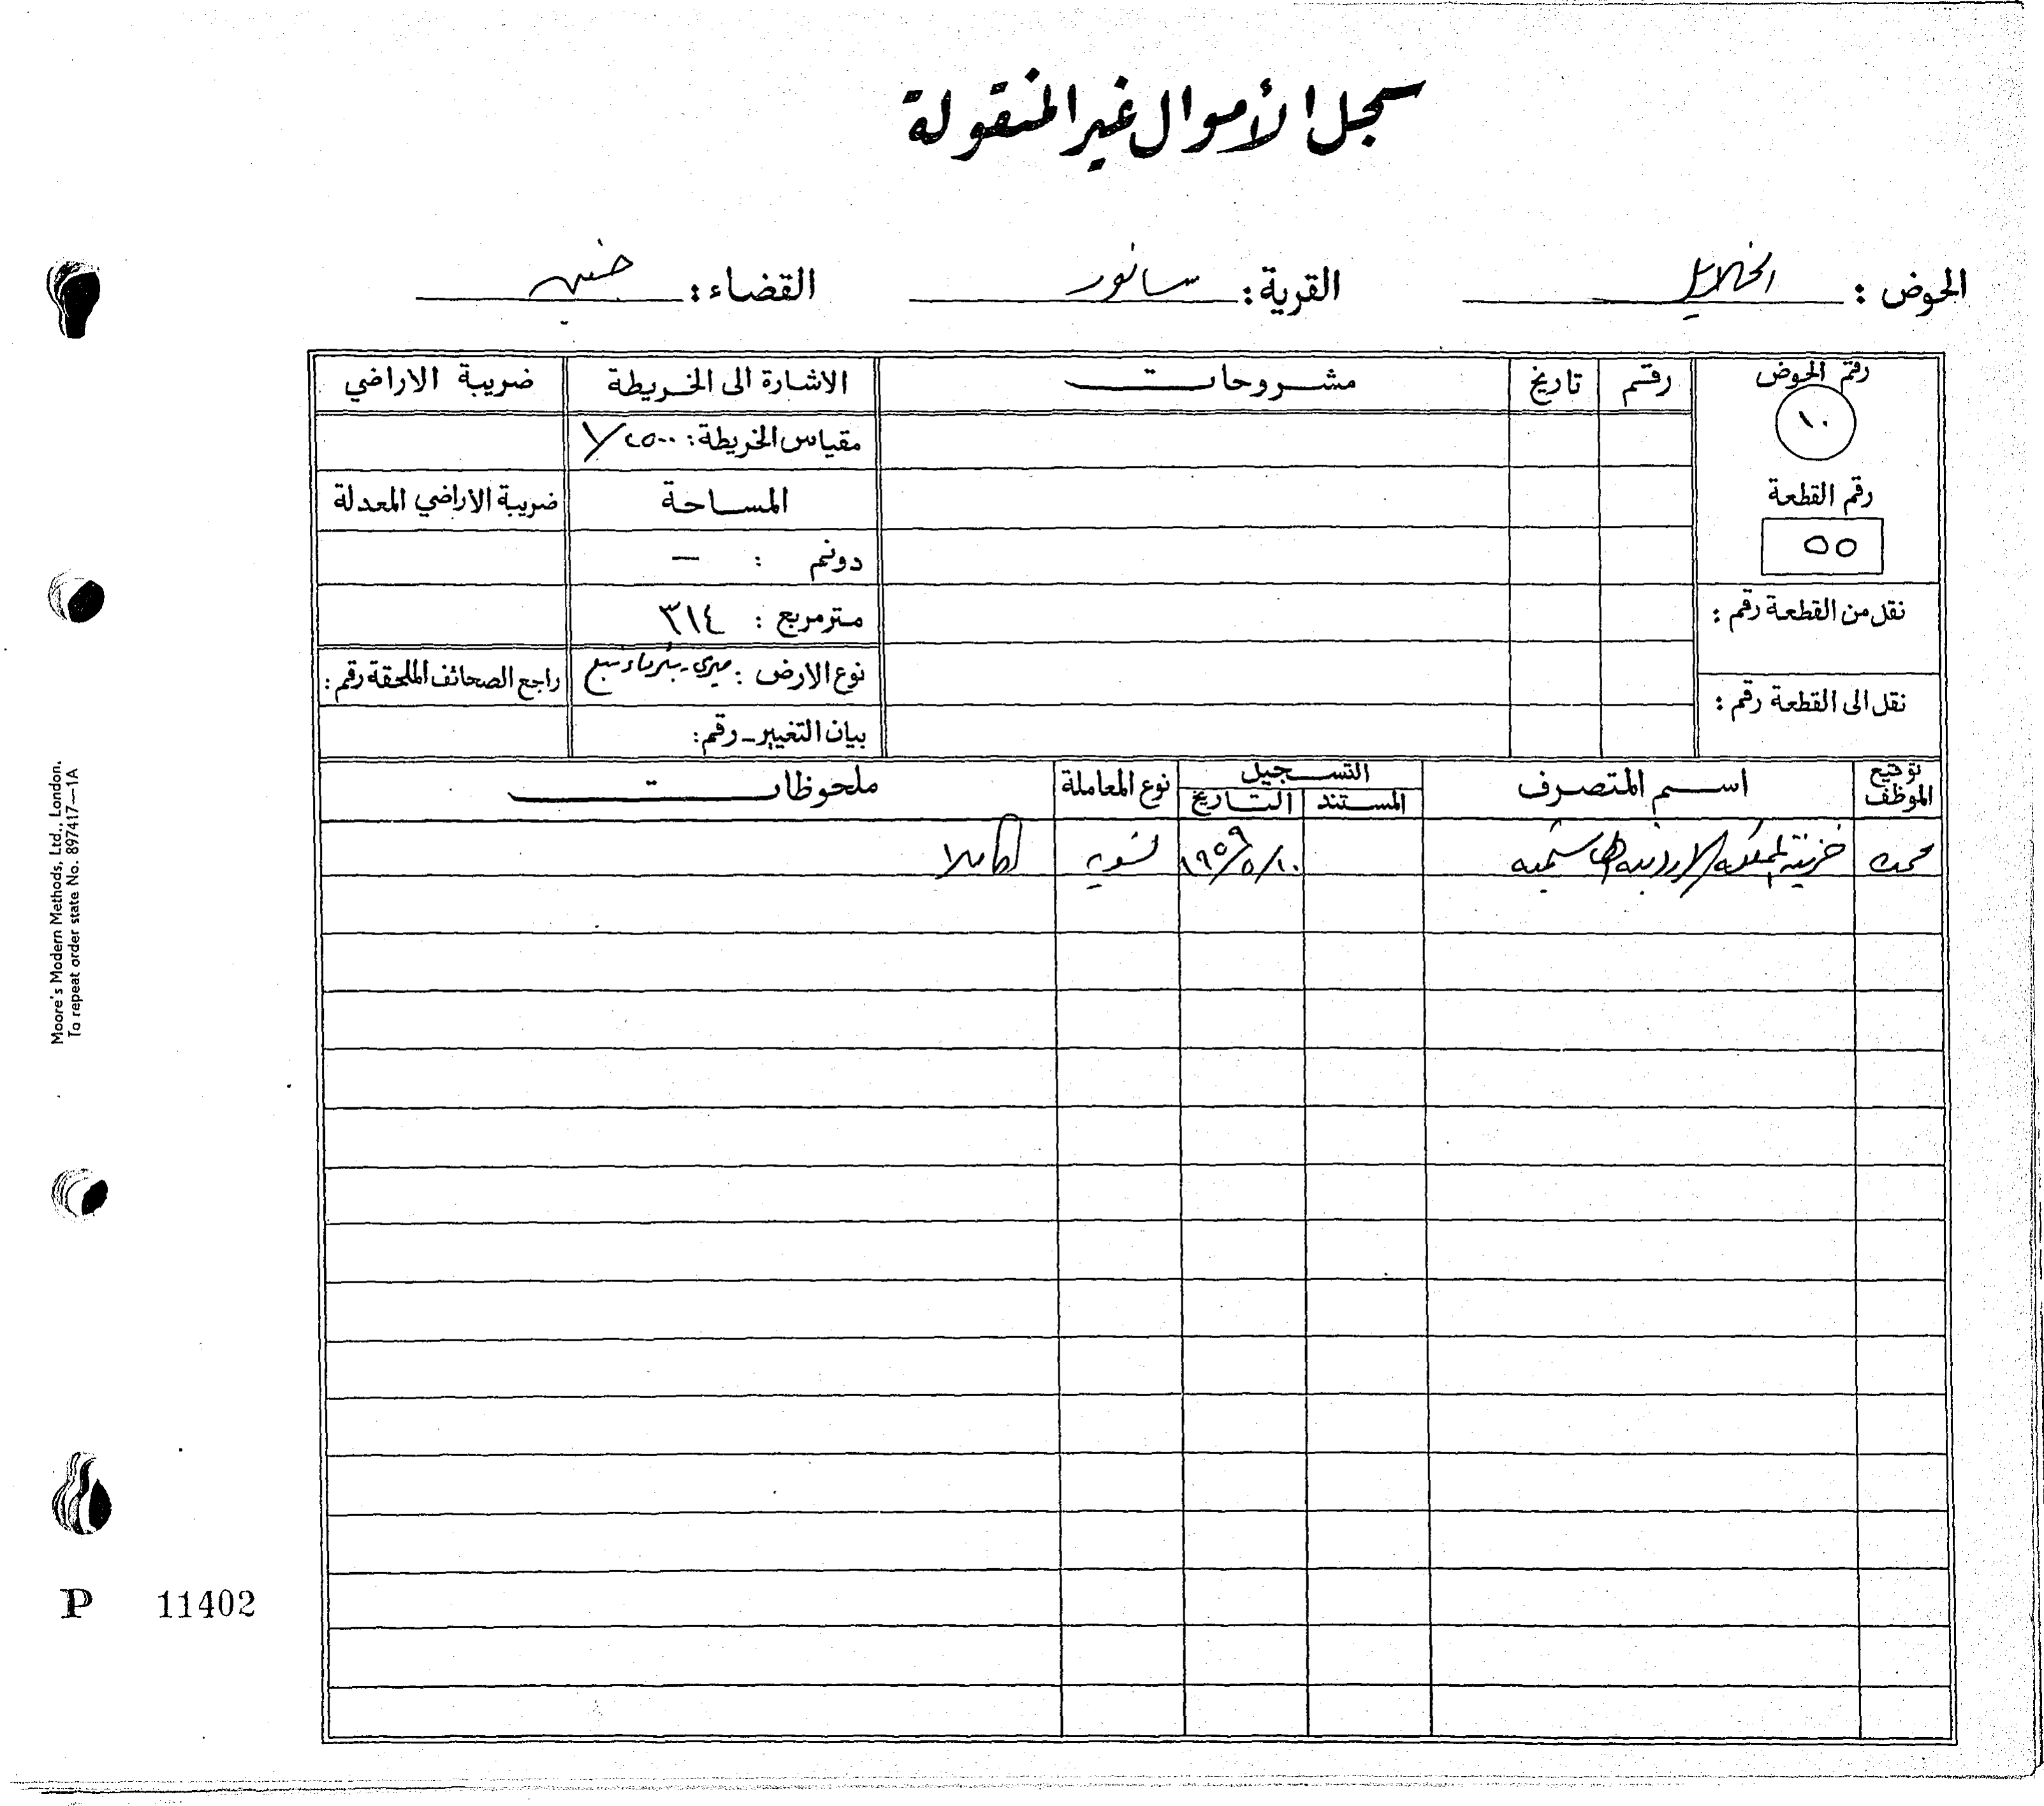 سجل الأموال غير المنقولة
الحوض : الخلايل القرية : سانور القضاء : جنين
رقم الحوض رقم تاريخ مشروحات الاشارة الى الخريطة ضريبة الاراضي
١٠ مقياس الخريطة : ١/٢٥٠٠
رقم القطعة المساحة ضريبة الاراضي المعدلة
٥٥ دونم : —
نقل من القطعة رقم : متر مربع : ٣١٤
نوع الارض : ميري - بئر ماء نبع راجع الصحائف الملحقة رقم :
نقل الى القطعة رقم :
بيان التغيير - رقم :
توقيع الموظف اسم المتصرف التسجيل نوع المعاملة ملحوظات
المستند التاريخ
خزينة المملكة الاردنية الهاشمية ١٩٥٩/٥/١٠ تسوية كاملا
Moore's Modern Methods, Ltd., London.
To repeat order state No. 897417—1A
P 11402